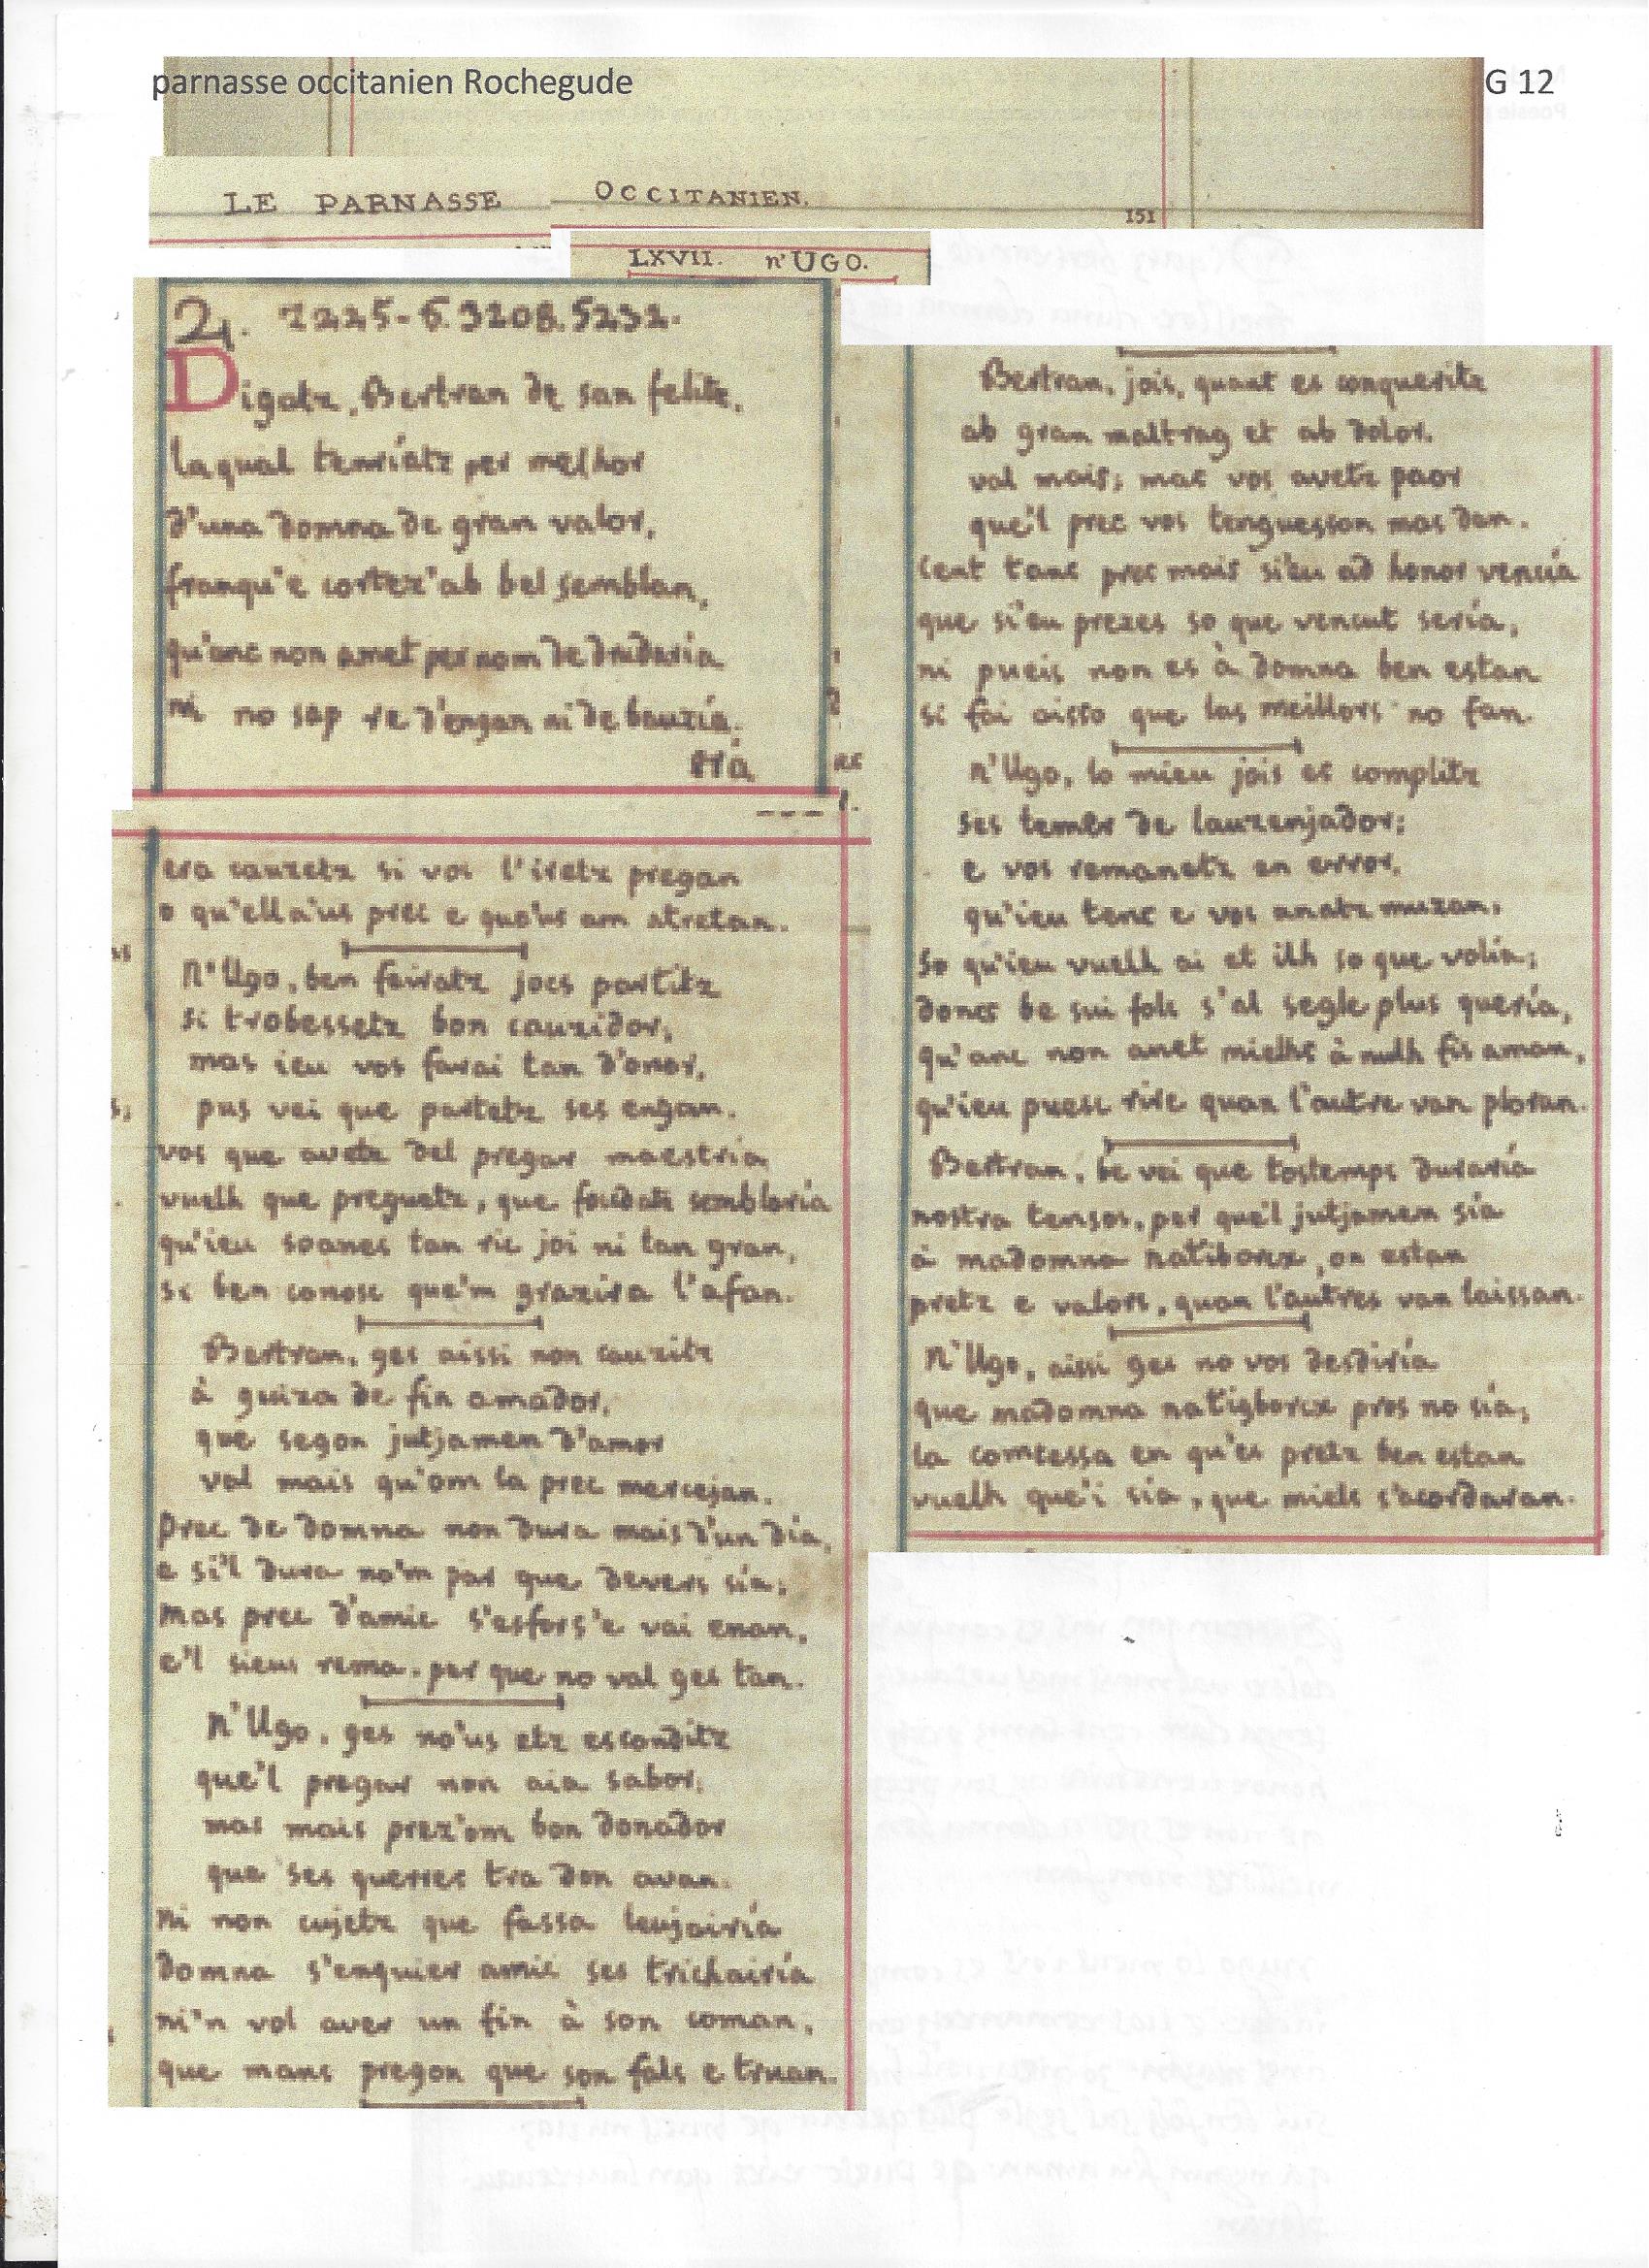 parnasse occitanien Rochegude
G 12
LE PARNASSE OCCITANIEN.
151
LXVII. n'UGO.
2. 7225-6.3208.5232.
Digatz, Bertran de san felitz,
laqual tenríatz per melhor
d'una domna de gran valor,
franqu'e cortez'ab bel semblan,
qu'anc non amet per nom de drudaria
ni no sap re d'engan ni de bauzía.
era cauzetz si vos l'iretz pregan
o qu'ella'us prec e qua'us am atretan.
N'Ugo, ben feiratz jocs partitz
si trobessetz bon cauzidor,
mas ieu vos farai tan d'onor,
pus vei que partetz ses engan.
vos que avetz del pregar maestria
vuelh que preguetz, que foudatz semblaría
qu'ieu soanes tan ric joi ni tan gran,
si ben conosc que'm grazira l'afan.
Bertran, ges aissi non cauzitz
à guiza de fin amador,
que segon jutjamen d'amor
val mais qu'om la prec mercejan.
prec de domna non dura mais d'un día,
e si'l dura no'm par que devers sía;
mas prec d'amic s'esfors'e vai enan,
e'l sieus rema, per que no val ges tan.
N'Ugo, ges no'us etz esconditz
que'l pregar non aia sabor;
mas mais prez'om bon donador
que ses querres tra don avan.
ni non cujetz que fassa leujairía
domna s'enquier amic ses trichairía
ni'n vol aver un fin à son coman,
que mans pregon que son fals e truan.
Bertran, jois, quant es conqueritz
ab gran maltrag et ab dolor,
val mais; mas vos avetz paor
que'l prec vos tenguesson mas dan.
cent tans prec mais si'eu ad honor vencía
que si'eu prezes so que vencut sería,
ni pueis non es à domna ben estan
si fai aisso que las meillors no fan.
N'Ugo, lo mieu jois es complitz
ses temer de lauzenjador;
e vos remanetz en error,
qu'ieu tenc e vos anatz muzan;
so qu'ieu vuelh ai et ilh so que volía;
doncs be sui fols s'al segle plus quería,
qu'anc non anet mielhs à nulh fis aman,
qu'ieu puesc rire quan l'autre van ploran.
Bertran, be vei que tostemps duraría
nostra tensos, per que'l jutjamen sía
à madomna natiborcx, on estan
pretz e valors, quan l'autres van laissan.
N'Ugo, aissi ges no vos desdiría
que madomna natigborcx pros no sía;
la comtessa en qu'es pretz ben estan
vuelh que'i sía, que miels s'acordaran.